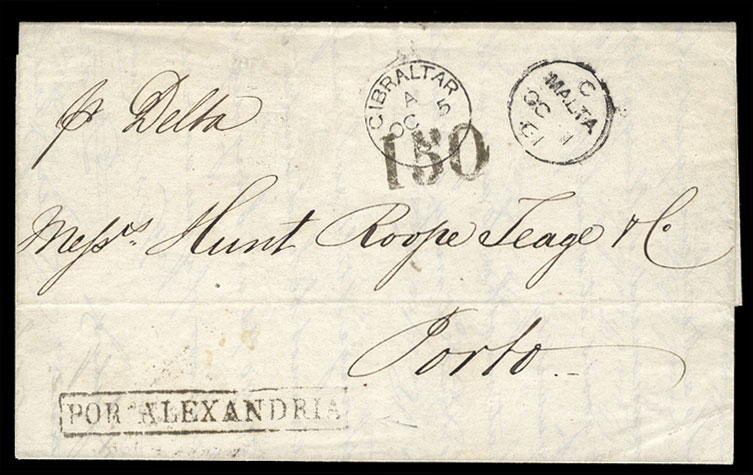 pr Delta
GIBRALTAR
A 5
OC
150
C
MALTA
OC 1
61
Messrs. Hunt Roope Teage & Co
Porto
POR ALEXANDRIA